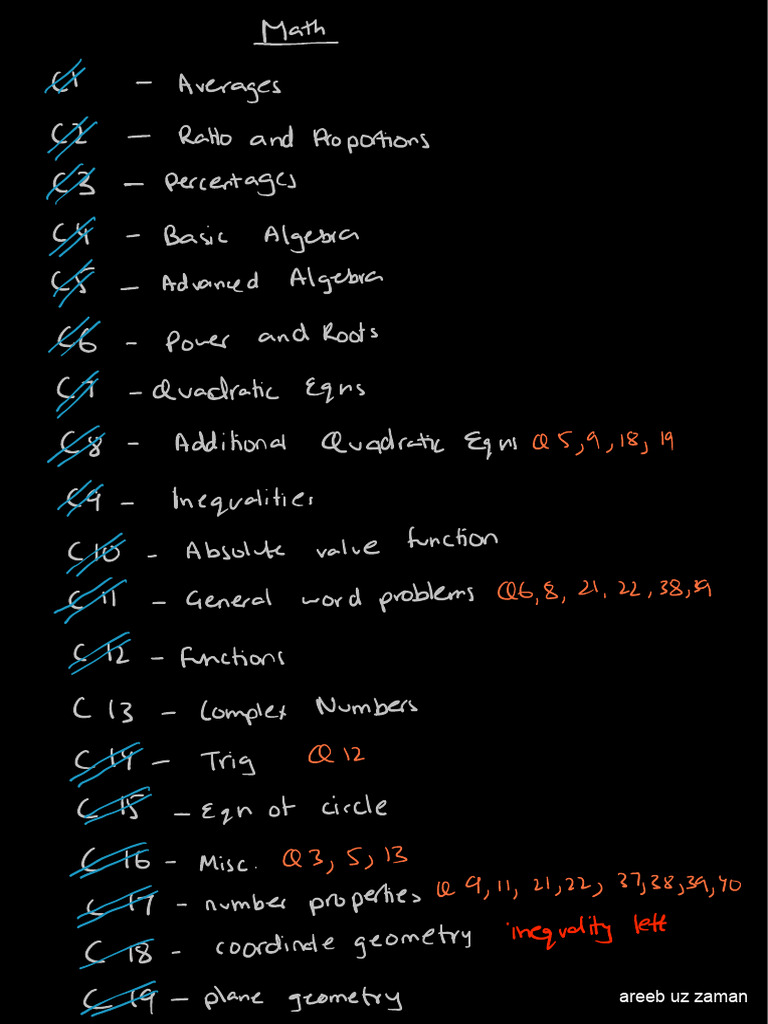 Math
C1 - Averages
C2 - Ratio and Proportions
C3 - Percentages
C4 - Basic Algebra
C5 - Advanced Algebra
C6 - Power and Roots
C7 - Quadratic Eqns
C8 - Additional Quadratic Eqns Q 5, 9, 18, 19
C9 - Inequalities
C10 - Absolute value function
C11 - General word problems Q6, 8, 21, 22, 38, 39
C12 - Functions
C13 - Complex Numbers
C14 - Trig Q 12
C15 - Eqn of circle
C16 - Misc. Q 3, 5, 13
C17 - number properties Q 9, 11, 21, 22, 37, 38, 39, 40
C18 - coordinate geometry inequality left
C19 - plane geometry
areeb uz zaman